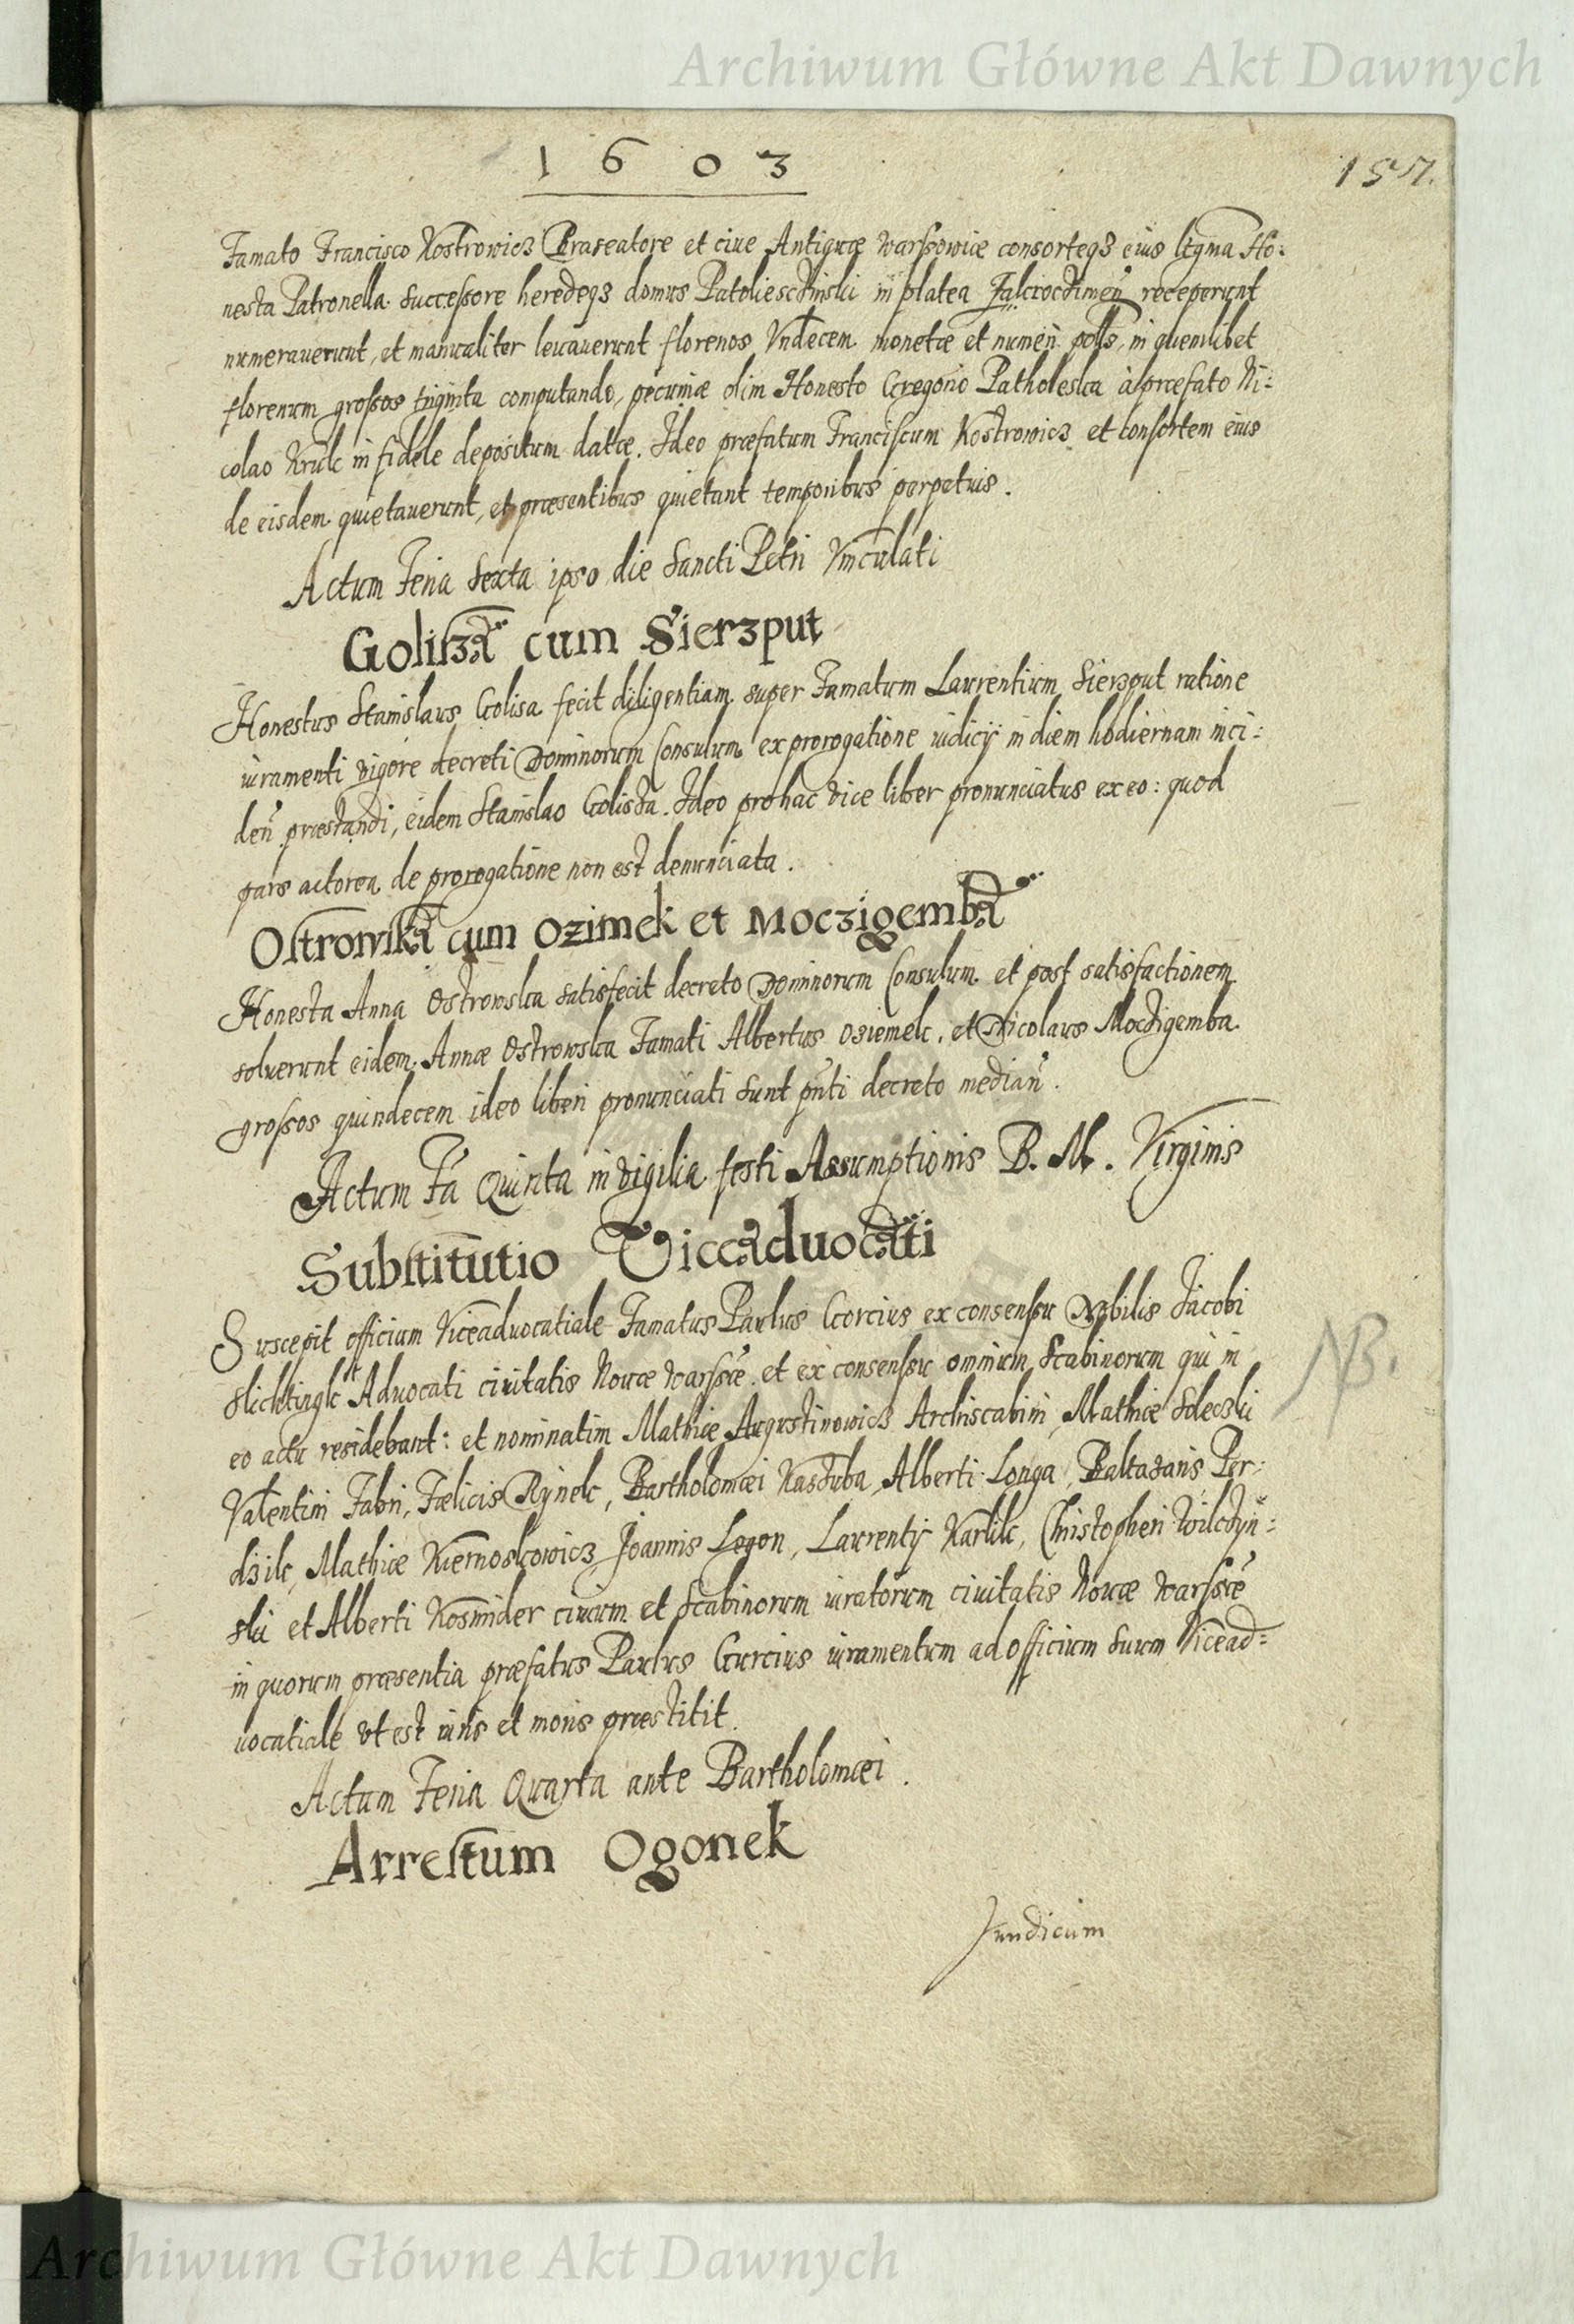 Archiwum Główne Akt Dawnych
1603
157.
Famato Francisco Kostrowicz Braseatore et ciue Antiquæ warssowiæ consorteqз eius ltgma Ho:
nesta Patronella successore heredeqз domus in platea receperunt
numerauerunt, et manualiter leuauerunt florenos Vndecem monetæ et numeri polls, in quemlibet
florenum grossos triginta computando, pecuniæ olim Honesto Gregorio Patholeska à præfato Ni:
colao Kruk in fidele depositum datæ. Ideo præfatum Franciscum Kostrowicz et consortem eius
de eisdem quietauerunt, et præsentibus quietant temporibus perpetuis.
Actum Feria Sexta ipso die Sancti Petri Vinculati
Golisza cum Sierzput
Honestus Stanislaus Golisa fecit diligentiam super Famatum Laurentium Sierzput ratione
iuramenti vigore decreti Dominorum Consulum ex prorogatione iudicij in diem hodiernam inci:
den præstandi, eidem Stanislao Golisza. Ideo pro hac vice liber pronunciatus ex eo: quod
pars actorea de prorogatione non est denunciata.
Ostrowska cum Ozimek et Moczigemba
Honesta Anna Ostrowska satisfecit decreto Dominorum Consulum et post satisfactionem
soluerunt eidem Annæ Ostrowska Famati Albertus Oziemek, et Nicolaus Moczigemba
grossos quindecem ideo liberi pronunciati sunt pnti decreto median.
Actum Fa Quinta in vigilia festi Assumptionis B. M. Virginis
Substitutio Viceaduocati
Suscepit officium Viceaduocatiale Famatus Paulus Gorcius ex consensu Nobilis Jacobi
Slichtingk Aduocati ciuitatis Nouæ warssæ et ex consensu omnium Scabinorum qui in
NB.
eo actu residebant: et nominatim Mathiæ Augustinowicz Archiscabini, Mathiæ Sdeczki
Valentini Fabri, Fælicis Rynek, Bartholomæi Kaszuba, Alberti Longa, Baltazaris Per:
dzik, Mathiæ Kiernoskowicz Joannis Legon, Laurentij Karlik, Christopheri Wilczyn:
ski et Alberti Kosmider ciuium et Scabinorum iuratorum ciuitatis Nouæ warssæ
in quorum præsentia præfatus Paulus Gurcius iuramentum ad officium suum Vicead=
uocatiale vt est iuris et moris præstitit.
Actum Feria Quarta ante Bartholomæi.
Arrestum Ogonek
Archiwum Główne Akt Dawnych